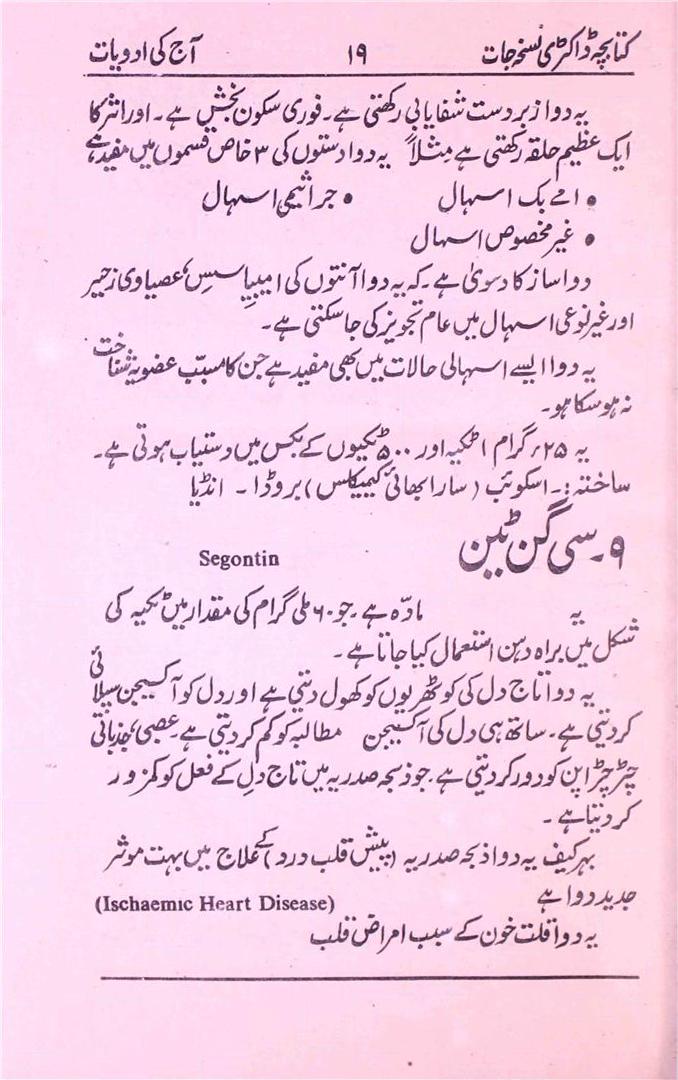 کتابچہ ڈاکٹری نسخہ جات ۱۹ آج کی ادویات
یہ دوا زبردست شفایابی رکھتی ہے۔ فوری سکون بخش ہے۔ اور اثر کا
ایک عظیم حلقہ رکھتی ہے مثلاً یہ دوا دستوں کی ۳ خاص قسموں میں مفید ہے
• امے بک اسہال • جراثیمی اسہال
• غیر مخصوص اسہال
دوا ساز کا دعویٰ ہے۔ کہ یہ دوا آنتوں کی امیبیاسس، عصیاوی زحیر
اور غیر نوعی اسہال میں عام تجویز کی جاسکتی ہے۔
یہ دوا ایسے اسہالی حالات میں بھی مفید ہے جن کا مسبّب عضویہ شناخت
نہ ہو سکا ہو۔
یہ ۲۵ء گرام ا ٹکیہ اور ۵۰۰ ٹکیوں کے بکس میں دستیاب ہوتی ہے۔
ساختہ :۔ اسکوئب (سارا بھائی کیمیکلس) بروڈا ۔ انڈیا
۹۔ سی گن ٹین Segontin
یہ مادّہ ہے۔ جو ۶۰ ملی گرام کی مقدار میں ٹکیہ کی
شکل میں براہ دہن استعمال کیا جاتا ہے۔
یہ دوا تاج دل کی کوٹھریوں کو کھول دیتی ہے اور دل کو آکسیجن سپلائی
کر دیتی ہے۔ ساتھ ہی دل کی آکسیجن مطالبہ کو کم کر دیتی ہے۔ عصبی، جذباتی
چڑچڑاپن کو دور کر دیتی ہے۔ جو ذبحہ صدریہ میں تاج دل کے فعل کو کمزور
کر دیتا ہے۔
بہرکیف یہ دوا ذبحہ صدریہ (پیش قلب درد) کے علاج میں بہت موثر
جدید دوا ہے (Ischaemic Heart Disease)
یہ دوا قلت خون کے سبب امراض قلب